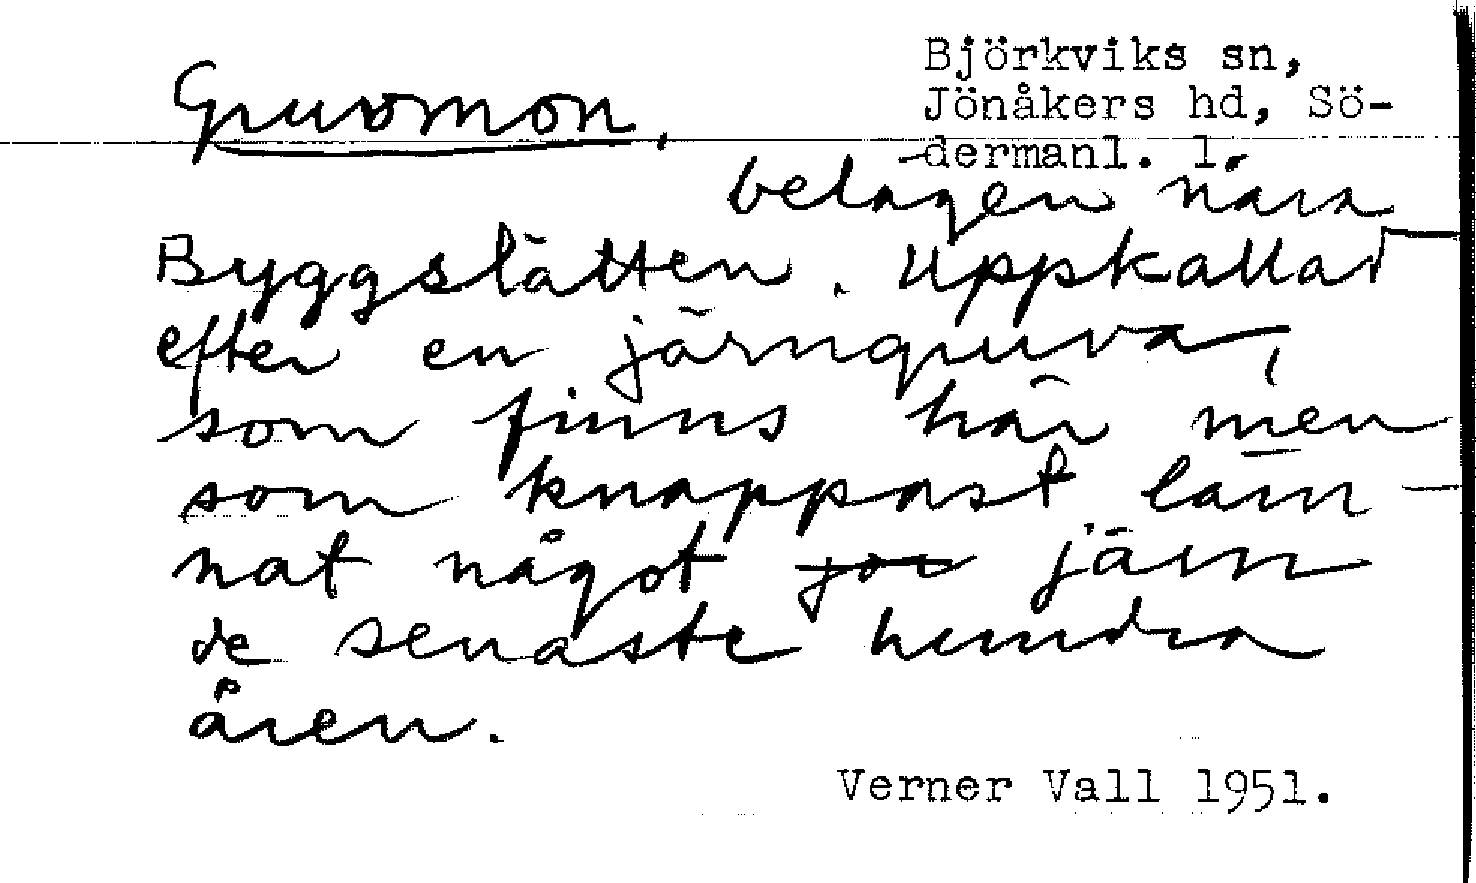 Gruvmon.
Björkviks sn,
Jönåkers hd, Sö-
dermanl. l.
belagen nära
Byggslätten. Uppkallad
efter en järngruva,
som finns här men
som knappast läm-
nat något jor järn
de senaste hundra
åren.
Verner Vall 1951.